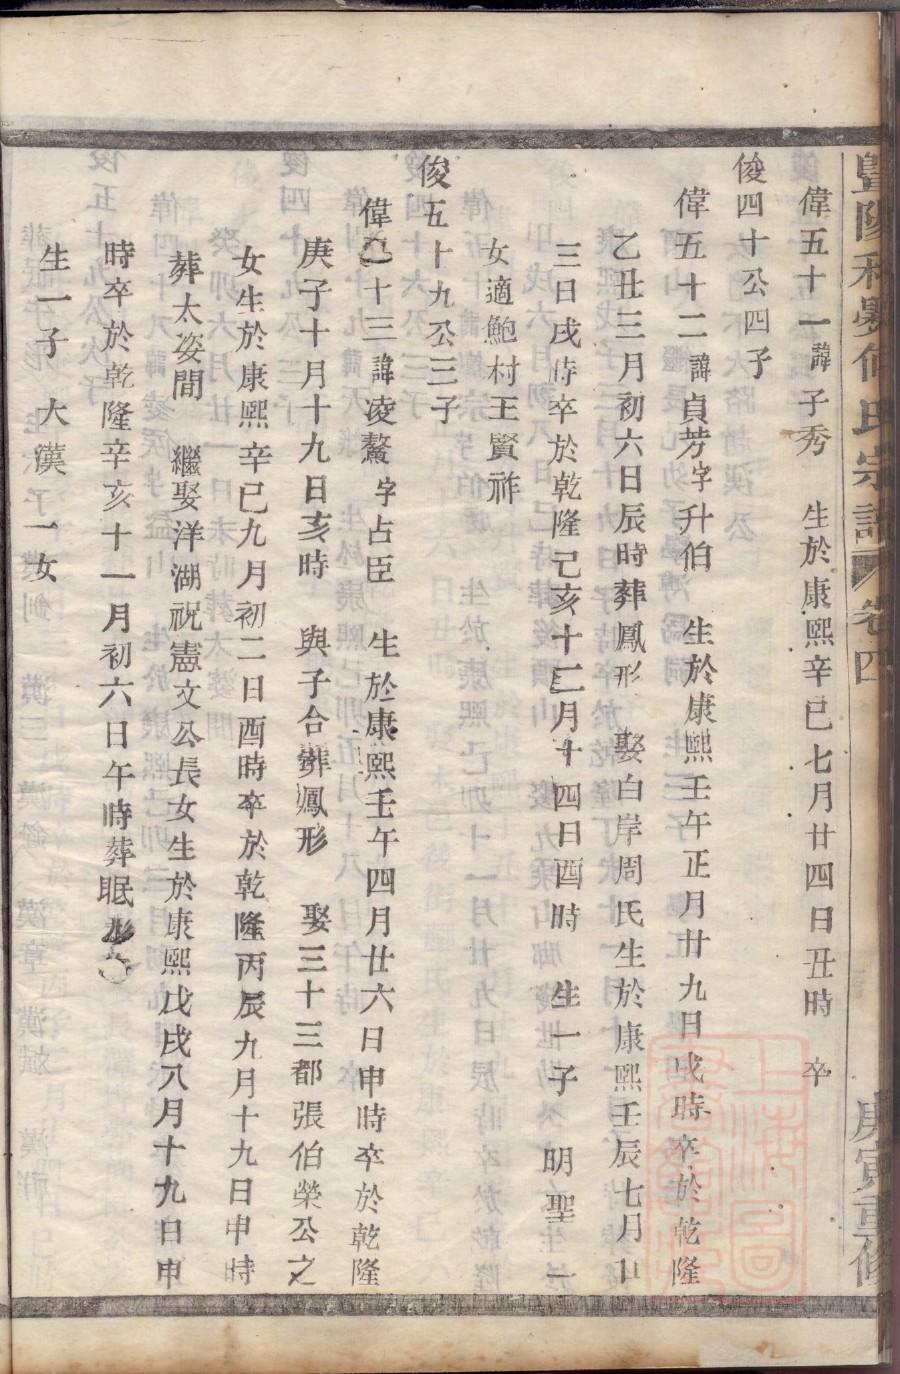 暨陽和㝊何氏宗譜 卷四 庚寅重修
偉五十一諱子秀 生於康熙辛巳七月廿四日丑時 卒
俊四十公四子
偉五十二諱貞芳字升伯 生於康熙壬午正月廿九日戌時卒於乾隆
乙丑三月初六日辰時葬鳳形 娶白岸周氏生於康熙壬辰七月
三日戌時卒於乾隆己亥十二月十四日酉時 生一子 明聖 一
女適鮑村王賢祚
俊五十九公三子
偉五十三諱凌鰲字占臣 生於康熙壬午四月廿六日申時卒於乾隆
庚子十月十九日亥時 與子合葬鳳形 娶三十三都張伯榮公之
女生於康熙辛巳九月初二日酉時卒於乾隆丙辰九月十九日申時
葬太姿間 繼娶洋湖祝憲文公長女生於康熙戊戌八月十九日申
時卒於乾隆辛亥十一月初六日午時葬眠形
生一子 大漢 一女